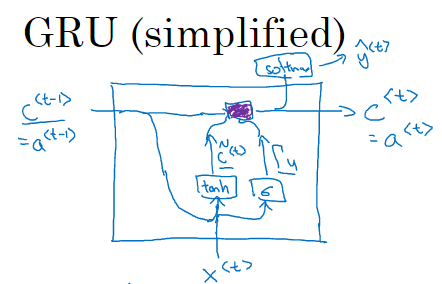 GRU (simplified)
softmax
ŷ<t>
c<t-1>
=a<t-1>
c<t>
=a<t>
c̃<t>
Γu
tanh
σ
x<t>